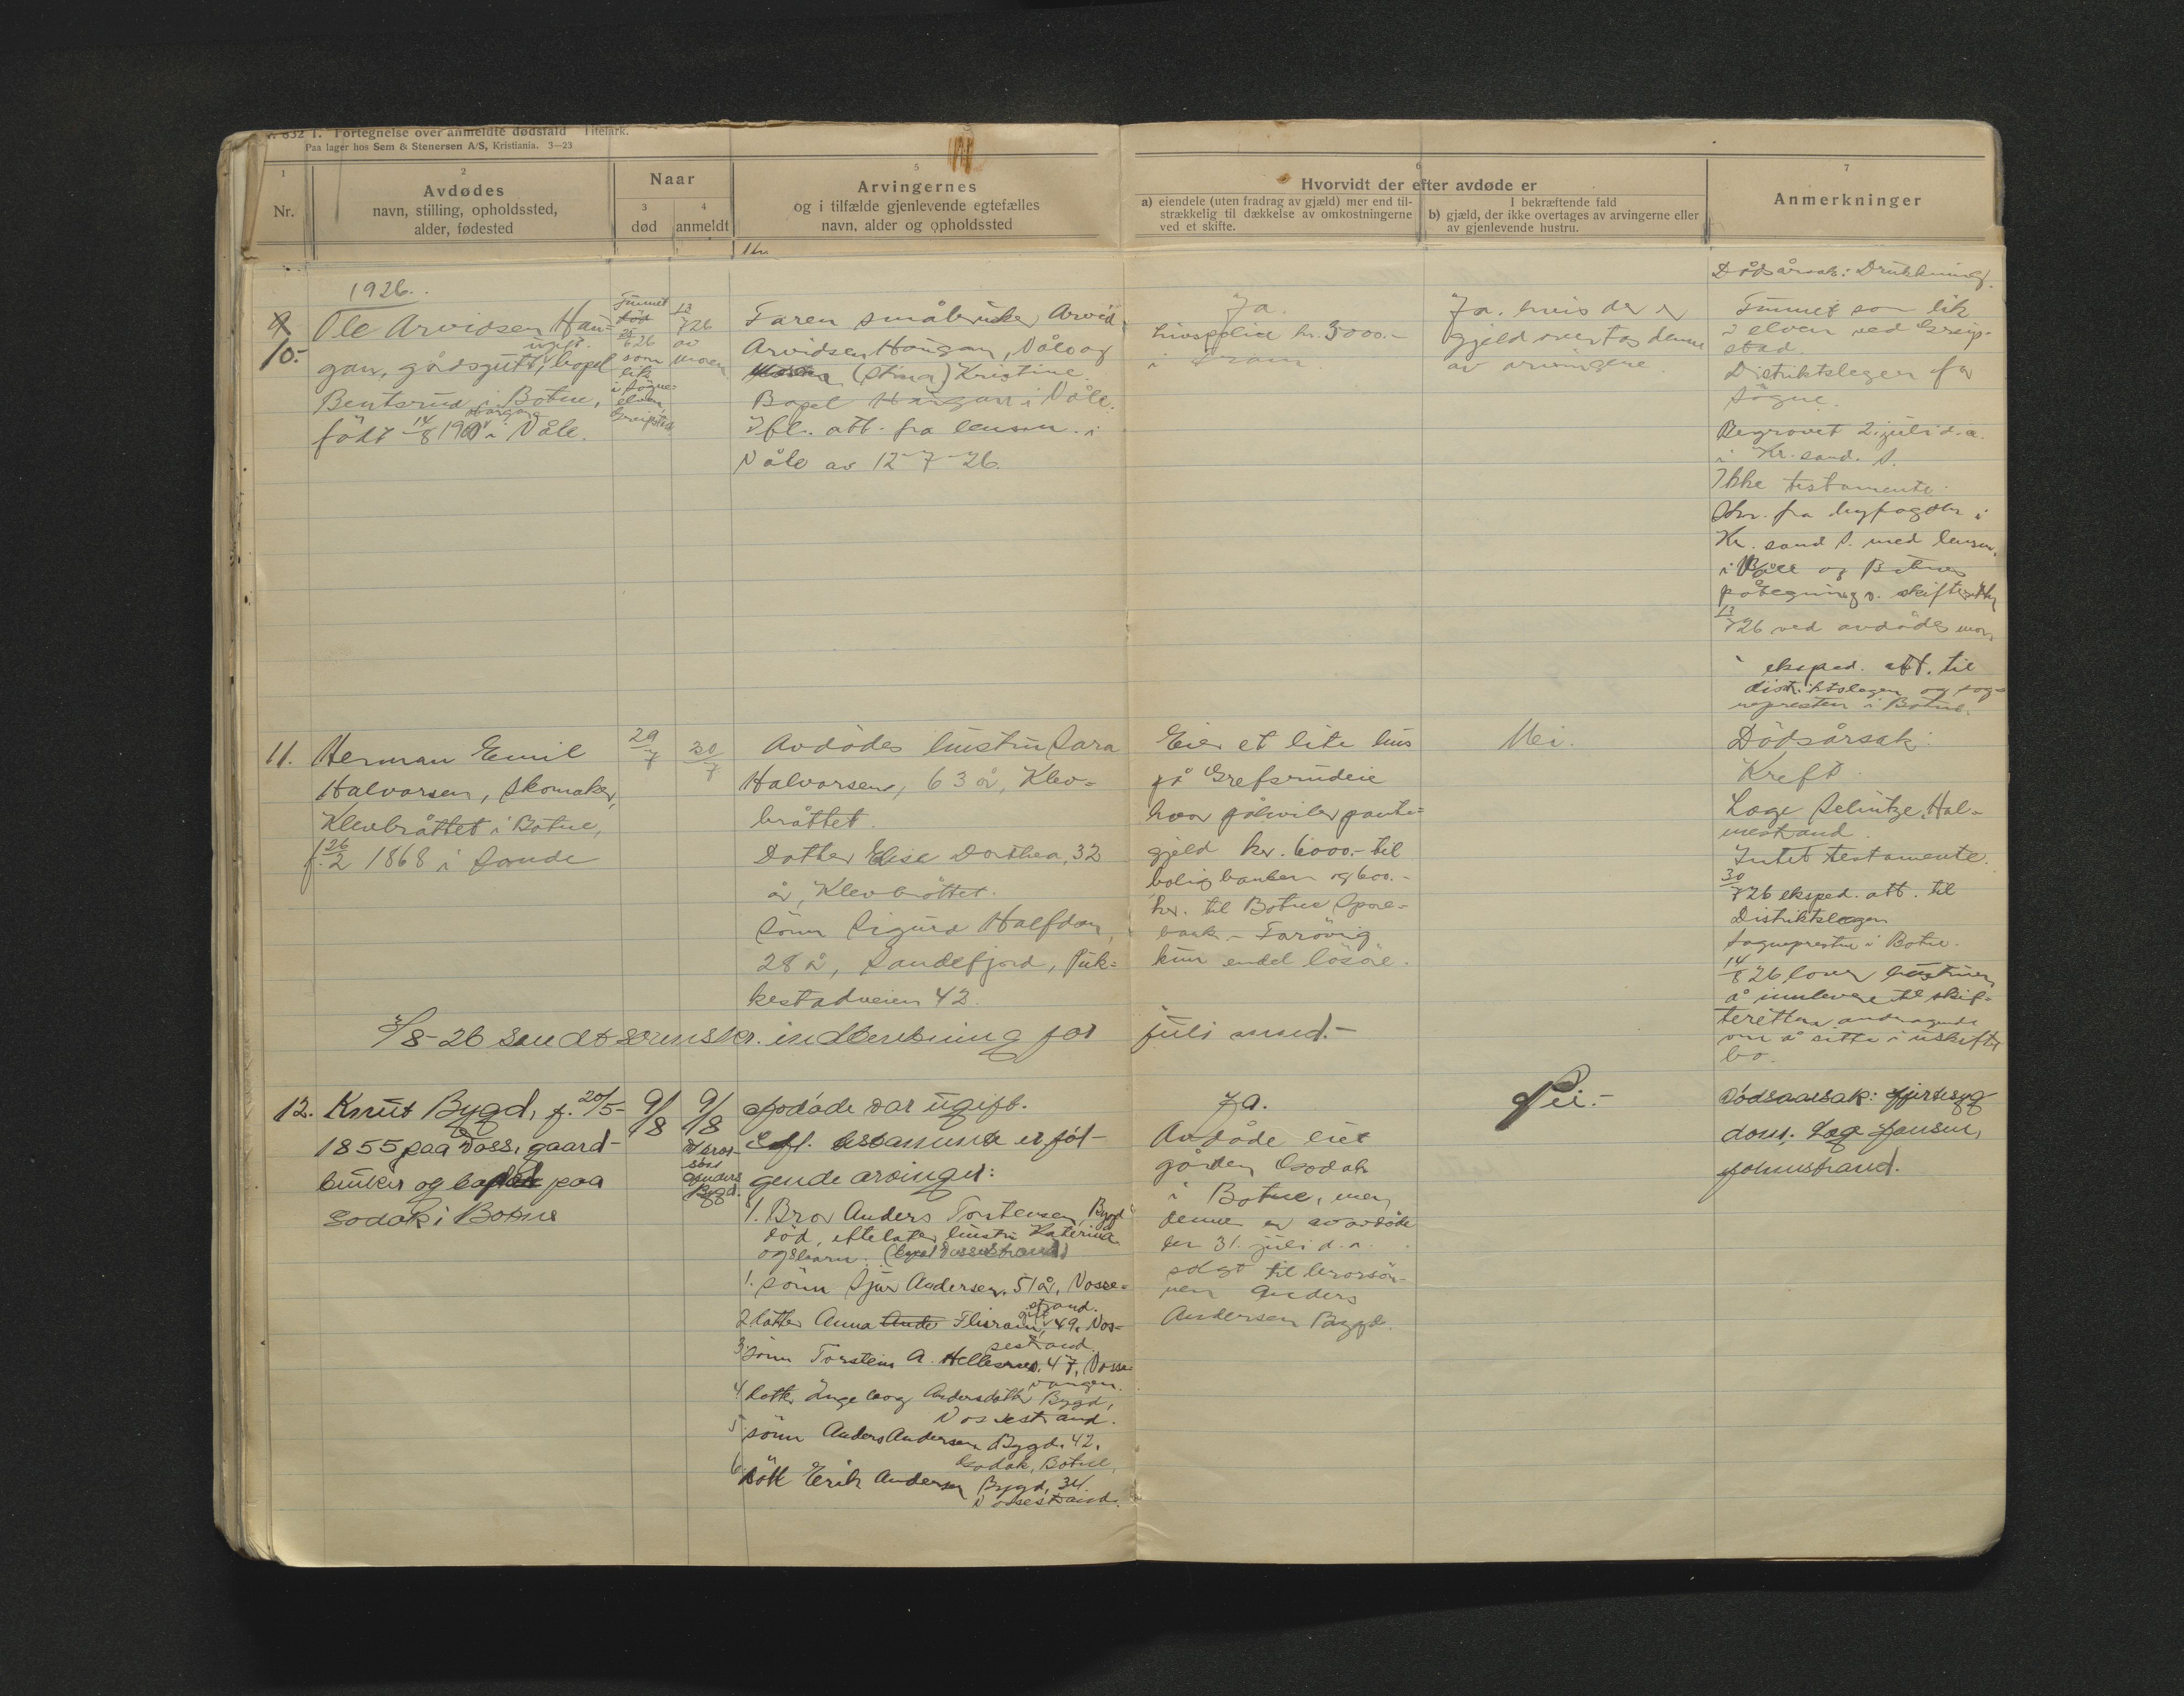 632 1. Fortegnelse over anmeldte dødsfald Titelark.
Paa lager hos Sem & Stenersen A/S, Kristiania. 3—23
1
Nr.
2
Avdødes
navn, stilling, opholdssted,
alder, fødested
Naar
3
død
4
anmeldt
5
Arvingernes
og i tilfælde gjenlevende egtefælles
navn, alder og opholdssted
6
Hvorvidt der efter avdøde er
a) eiendele (uten fradrag av gjæld) mer end til-
strækkelig til dækkelse av omkostningerne
ved et skifte.
I bekræftende fald
b) gjæld, der ikke overtages av arvingerne eller
av gjenlevende hustru.
7
Anmerkninger
1926.
10.
Ole Arvidsen Hau-
gan, gårdsgutt, ugift. bopel
Bentsrud i Botne,
født 14/8 190 i Våle.
Funnet
død
26
som
lik
i Søgne-
elven
Greipstad
13/7 26
av
moren
Faren småbruker Arvid
Arvidsen Haugan, Våle og
(Stina) Kristine.
Bopel Haugan i Våle.
Ifl. att. fra lensm. i
Våle av 12-7-26.
Ja.
Livspolice kr. 3000.-
i Fram
Ja. hvis der er
gjeld overtas denne
av arvingene.
Dødsårsak: Drukkning.
Funnet som lik
i elven ved Greip-
stad.
Distriktslegen for
Søgne.
Begravet 2. juli d.a.
i Kr. sand. S.
Ikke testamente.
Skr. fra byfogden i
Kr. sand S. med lensm.
i Våle og Botnes
påtegning s. skifteretten
13/7 26 ved avdødes mor.
eksped. att. til
distriktslegen og sog-
nepresten i Botne.
11.
Herman Emil
Halvorsen, skomaker,
Klevbråttet i Botne,
f. 26/2 1868 i Sande
29/7
30/7
Avdødes hustru Sara
Halvorsen, 63 år, Klev-
bråttet.
Datter Elise Dorthea, 32
år, Klevbråttet.
Sønn Sigurd Halfdan,
28 år, Sandefjord, Puk-
kestadveien 42.
Eier et lite hus
på Grefsrudeie
hvor påhviler pante-
gjeld kr. 6000.- til
boligbanken og 600.-
kr. til Botne Spare-
bank - Forøvrig
kun endel løsøre.
Nei.
Dødsårsak:
Kreft.
Lege Schutze, Hol-
mestrand.
Intet testamente.
30/7 26 eksped. att. til
Distriktslegen
Sognepresten i Botne.
14/8 26 lover hustruen
å innlevere til skif-
teretten andragende
om å sitte i uskiftet
bo.
3/8-26 sendt sorenskr. indberetning for juli mnd.-
12.
Knut Bygd, f. 20/5-
1855 paa Voss, gaard-
bruker og bopel paa
Sodak i Botne
9/8
9/8
Brors-
søn
Anders
Bygd.
Avdøde var ugift.
Efl. testamente er føl-
gende arvinger:
1. Bror Anders Torstensen Bygd
død, efterlater hustru Katerina
og barn. (bopel Vossestrand)
1. sønn Sjur Andersen, 51 år, Vosse-
strand.
2 datter Anna Ande Flisram, gift 49, Vos-
sestrand.
3 sønn Torstein A. Hellesnes, 47, Vosse-
vangen.
4 datter Ingeborg Andersdatter Bygd,
Vossestrand.
5. sønn Anders Andersen Bygd. 42.
Sodak, Botne,
6. Erik Andersen Bygd, 34.
Vossestrand.
Ja.
Avdøde eiet
gården Sodak
i Botne, men
denne er av avdøde
den 31. juli d.a.
solgt til brorsøn-
nen Anders
Andersen Bygd.
Nei.-
Dødsaarsak: Hjertesyg
dom. Læge Jansen,
Holmestrand.